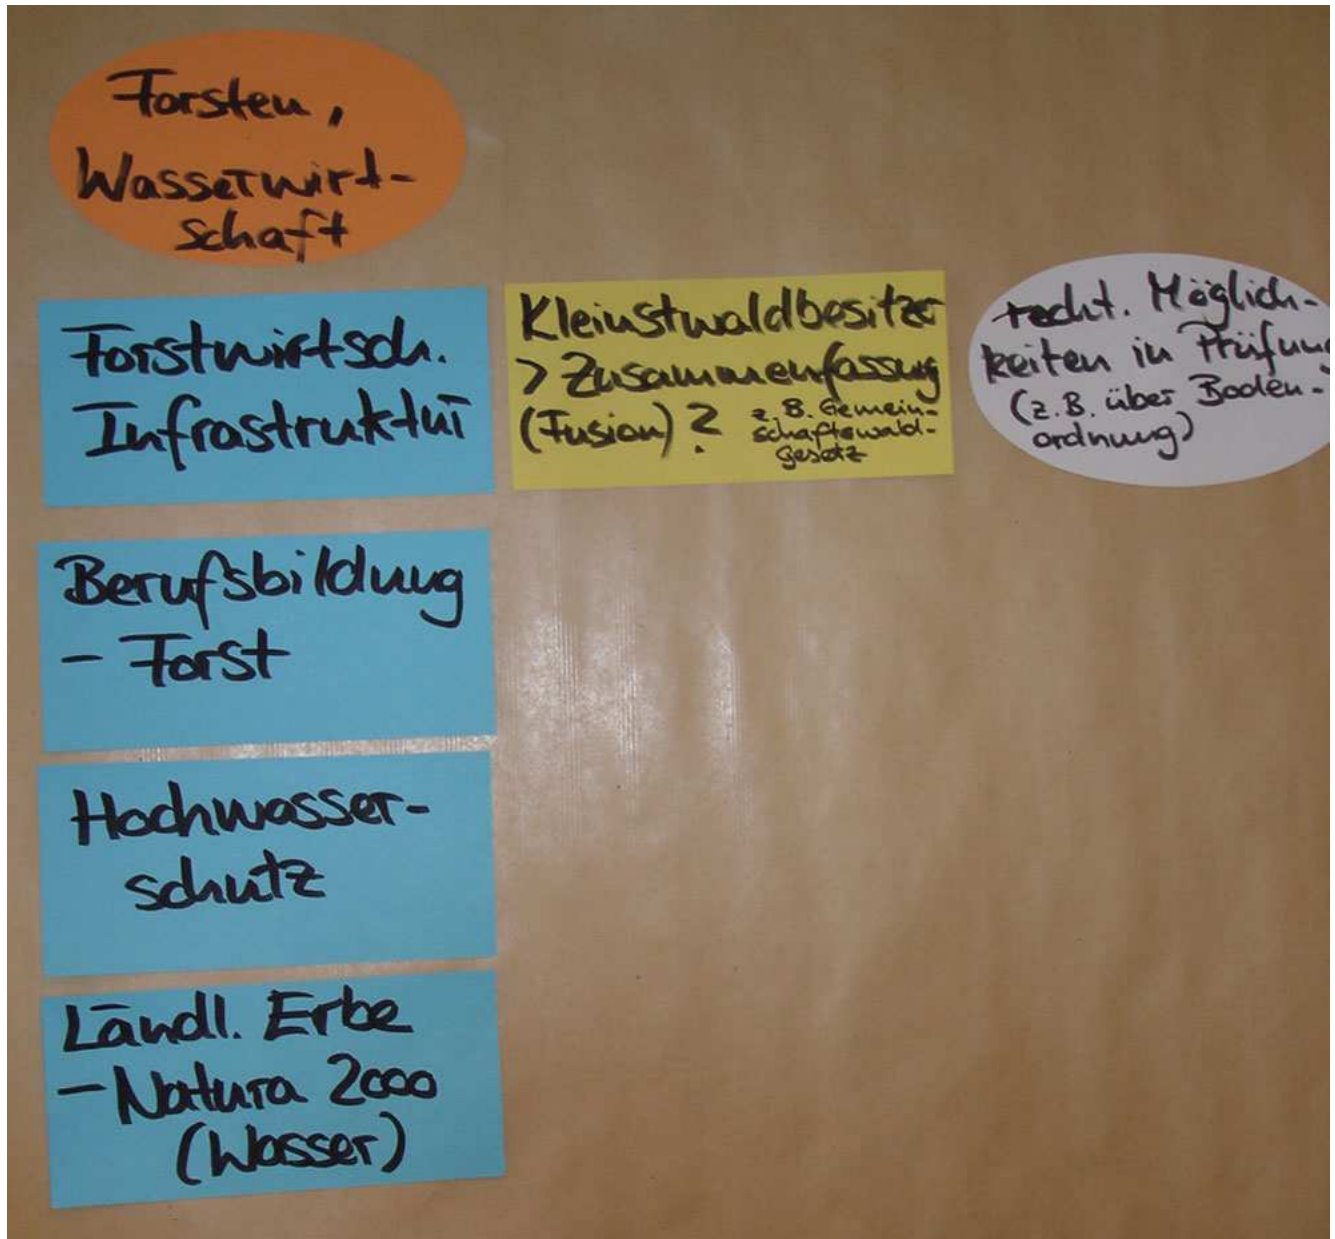 Forsten,
Wasserwirt-
schaft
Forstwirtsch.
Infrastruktur
Kleinstwaldbesitzer
> Zusammenfassung
(Fusion) ? z. B. Gemein-
schaftswald-
gesetz
recht. Möglich-
keiten in Prüfung
(z. B. über Boden-
ordnung)
Berufsbildung
- Forst
Hochwasser-
schutz
Ländl. Erbe
- Natura 2000
(Wasser)